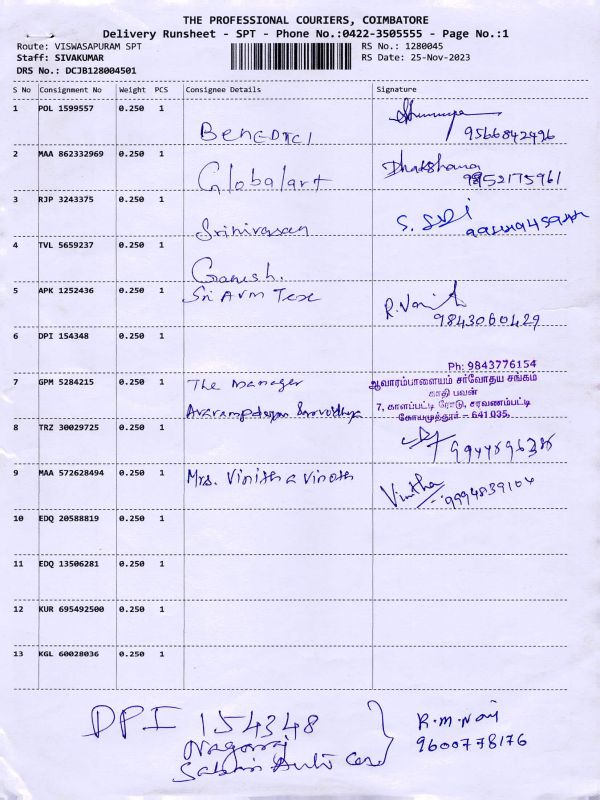 THE PROFESSIONAL COURIERS, COIMBATORE
Delivery Runsheet - SPT - Phone No.:0422-3505555 - Page No.:1
Route: VISWASAPURAM SPT RS No.: 1280045
Staff: SIVAKUMAR RS Date: 25-Nov-2023
DRS No.: DCJB128004501
S No Consignment No Weight PCS Consignee Details Signature
1 POL 1599557 0.250 1
BENEDICI 9566842496
2 MAA 862332969 0.250 1 Dhakshana
Globalart 9952175961
3 RJP 3243375 0.250 1
Srinivasan S.
4 TVL 5659237 0.250 1
Ganesh.
5 APK 1252436 0.250 1 Sri Arm Tex R.
9843060429
6 DPI 154348 0.250 1
Ph: 9843776154
ஆவாரம்பாளையம் சர்வோதய சங்கம்
7 GPM 5284215 0.250 1 The Manager காதி பவன்
7, காளப்பட்டி ரோடு, சரவணம்பட்டி
Avarampalayam Sarvodhya கோயமுத்தூர் – 641 035.
8 TRZ 30029725 0.250 1
9 MAA 572628494 0.250 1 Mrs. Vinitha Vinoth Vinitha
9994839104
10 EDQ 20588819 0.250 1
11 EDQ 13506281 0.250 1
12 KUR 695492500 0.250 1
13 KGL 60028036 0.250 1
DPI 154348 R.M.
Nagaraj 9600778176
Auto Care